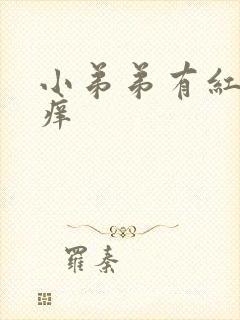 小弟弟有紅
痒
羅秦